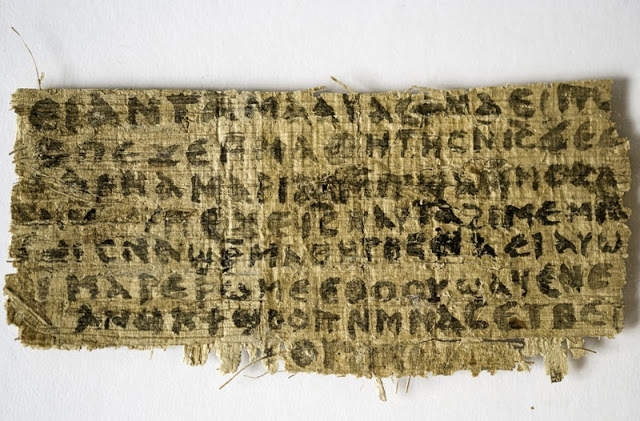 ⲉⲓ ⲁⲛ ⲧⲁⲙⲁⲁⲩ ⲁⲥϯ ⲛⲁⲉⲓ ⲡ
ⲡⲉϫⲉ ⲙⲙⲁⲑⲏⲧⲏⲥ ⲛⲓⲥ ϫⲉ ⲥ
ⲁⲣⲛⲁ ⲙⲁⲣⲓⲁⲙ
ⲡⲉϫⲉ ⲓⲥ ⲛⲁⲩ ⲧⲁϩⲓⲙⲉ ⲙⲛ
ⲥⲛⲁϣⲣⲙⲁⲑⲏⲧⲏⲥ ⲛⲁⲉⲓ ⲁⲩⲱ
ⲓ ⲙⲁⲣⲉⲣⲱⲙⲉ ⲉⲑⲟⲟⲩ ϣⲁϥⲉ ⲛⲉ
ⲁⲛⲟⲕ ϯϣⲟⲟⲡ ⲛⲙⲙⲁⲥ ⲉⲧⲃⲉ ⲡ